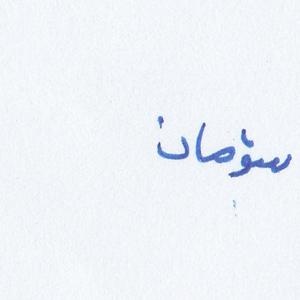 سؤمان